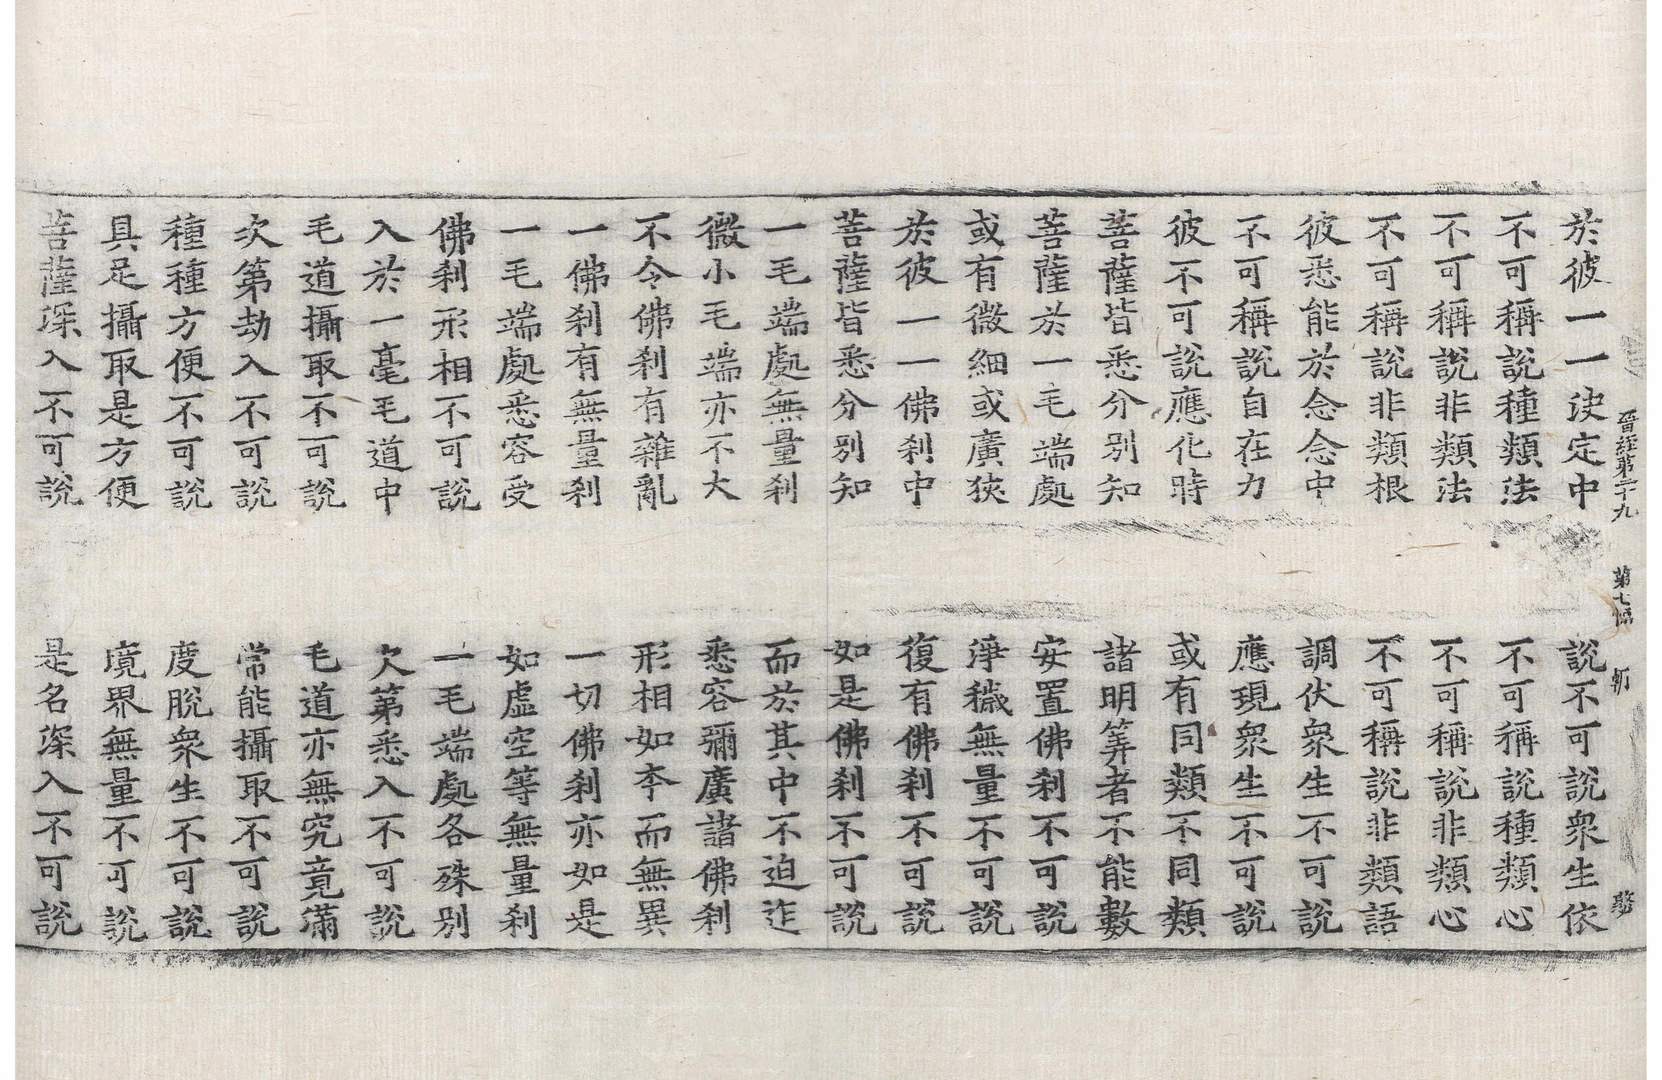 晉經第二十九 第七
於彼一一決定中 說不可說衆生依
不可稱說種類法 不可稱說種類心
不可稱說非類法 不可稱說非類心
不可稱說非類根 不可稱說非類語
彼悉能於念念中 調伏衆生不可說
不可稱說自在力 應現衆生不可說
彼不可說應化時 或有同類不同類
菩薩皆悉分別知 諸明筭者不能數
菩薩於一毛端處 安置佛刹不可說
或有微細或廣狹 淨穢無量不可說
於彼一一佛刹中 復有佛刹不可說
菩薩皆悉分別知 如是佛刹不可說
一毛端處無量刹 而於其中不迫迮
微小毛端亦不大 悉容彌廣諸佛刹
不令佛刹有雜亂 形相如本而無異
一佛刹有無量刹 一切佛刹亦如是
一毛端處悉容受 如虛空等無量刹
佛刹形相不可說 一毛端處各殊別
入於一毫毛道中 次第悉入不可說
毛道攝取不可說 毛道亦無究竟滿
次第劫入不可說 常能攝取不可說
種種方便不可說 度脫衆生不可說
具足攝取是方便 境界無量不可說
菩薩深入不可說 是名深入不可說